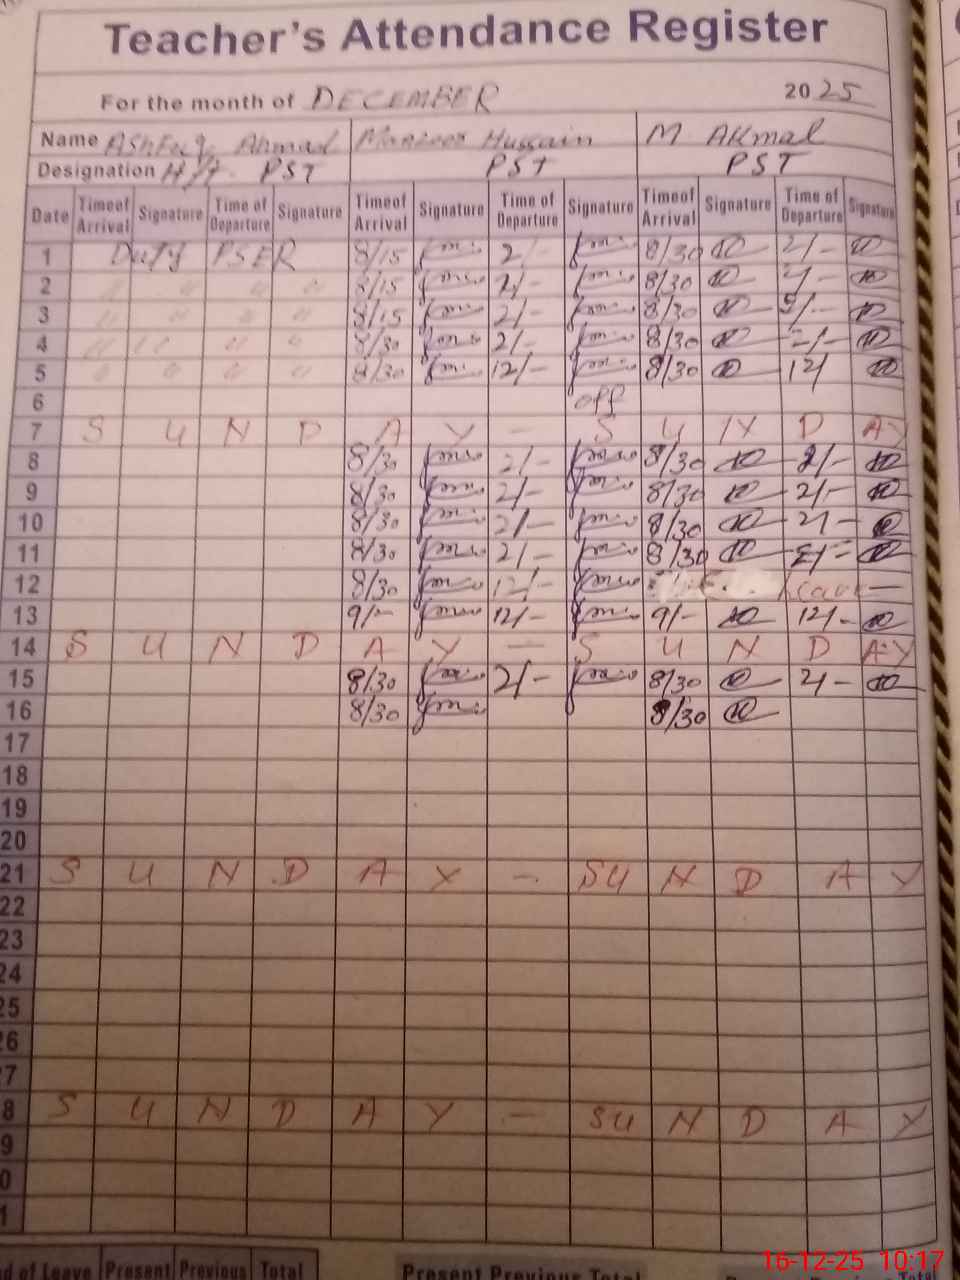 Teacher's Attendance Register
For the month of DECEMBER 2025
Name Ashfaq Ahmad Manzoor Hussain M Akmal
Designation H/t. PST PST PST
Date Time of Arrival Signature Time of Departure Signature Time of Arrival Signature Time of Departure Signature Time of Arrival Signature Time of Departure Signature
1 Duty PSER 8/15 2/- 8/30 2/-
2 " " " " 8/15 2/- 8/30 2/-
3 " " " " 8/15 2/- 8/30
4 " " " " 8/30 2/- 8/30 2/-
5 " " " " 8/30 12/- 8/30 12/
6 off
7 S U N D A Y - S U N D AY
8 8/30 2/- 8/30 2/-
9 8/30 2/- 8/30 2/-
10 8/30 2/- 8/30 2/-
11 8/30 2/- 8/30 2/-
12 8/30 12/- Leave
13 9/- 12/- 9/- 12/-
14 S U N D A Y - S U N D A.Y
15 8/30 2/- 8/30 2/-
16 8/30 8/30
17
18
19
20
21 S U N D A Y - SU N D A Y
22
23
24
25
26
7
8 S U N D A Y - SU N D A Y
9
0
1
d of Leave Present Previous Total Present Previous Total
16-12-25 10:17